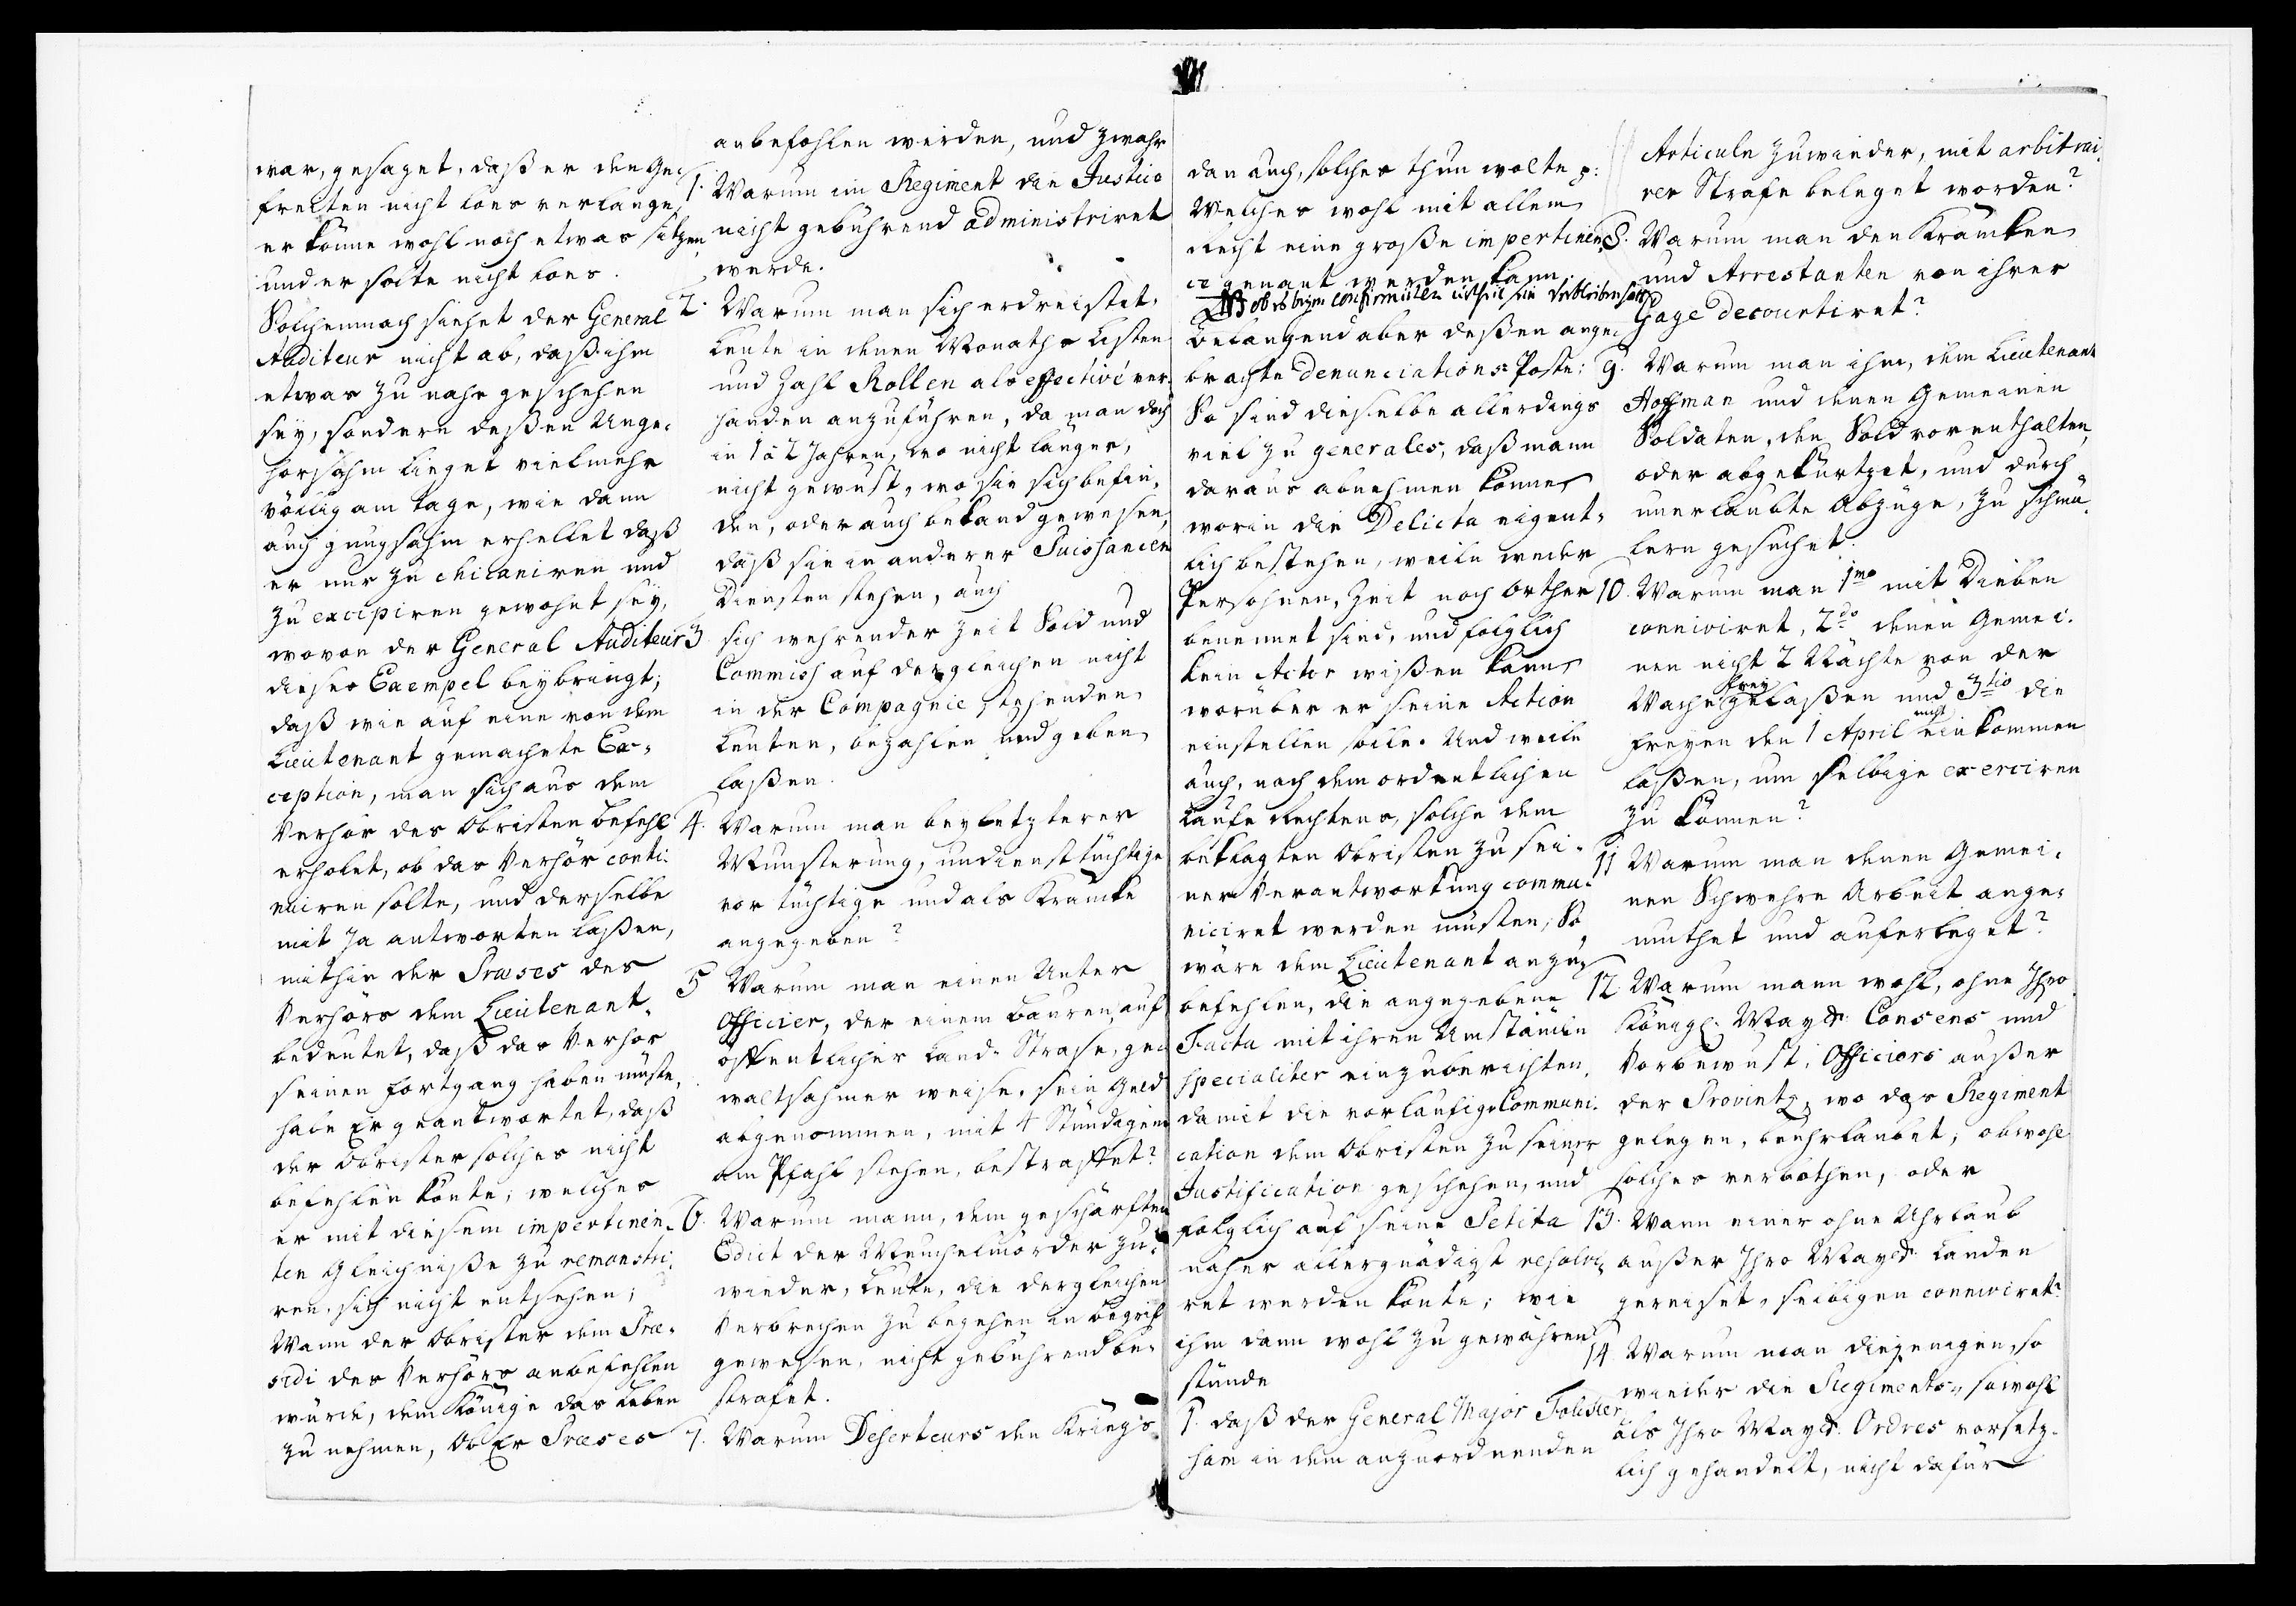 war, gesaget, daß er den Ge=
freiten nicht loes verlange,
er könne wohl noch etwas sitzen,
und er solte nicht loes.
Solchemnach siehet der General
Auditeur nicht ab, daß ihm
etwas zu nahe geschehen
sey, sondern deßen Unge=
horsahm lieget vielmehr
völlig am tage, wie dann
auch gnugsahm erhellet daß
er nur zu chicaniren und
zu excipiren gewohnt sey,
wovon der General Auditeur
dieses Exempel beybringt;
daß wie auf eine von dem
Lieutenant gemachete Ex=
ception, man sich aus dem
Verhör des Obristen befehl
erholet, ob das Verhör conti=
nuiren solte, und derselbe
mit Ja antworten laßen,
mithin der Præses des
Verhörs dem Lieutenant
bedeutet, daß das Verhör
seinen fortgang haben müste,
habe Er geantwortet, daß
der Obrister solches nicht
befehlen könte; welches
er mit diesem impertinen=
ten Gleichniße zu remonstri=
ren sich nicht entsehen;
Wann der Obrister dem Præ=
sidi des Verhörs anbefehlen
würde, dem Könige das Leben
zu nehmen, Ob Er Præses
anbefohlen werden, und zwahr
1. Warum im Regiment die Justice
nicht gebührend administriret
werde.
2. Warum man sich erdreistet,
Leute in denen Monaths Listen
und Zahl Rollen als effectivé ver=
handen anzuführen, da man doch
in 1 à 2 Jahren, wo nicht länger,
nicht gewust, wo sie sich befin=
den, oder auch bekand gewesen,
daß sie in anderer Puissancen
Diensten stehen, auch
3 sich wehrender Zeit Sold und
Commiss auf dergleichen nicht
in der Compagnie stehenden
Leuten, bezahlen und geben
laßen.
4. Warum man bey letzterer
Munsterung, undienst tüchtige
vor tüchtige und als Krancke
angegeben?
5 Warum man einen Unter
Officier, der einem Bauren, auf
öffentlicher Land= Straße, ge=
waltsahmer weise, sein Geld
abgenommen, mit 4 Stündigem
am Pfahl stehen, bestraffet?
6. Warum mann, dem geschärften
Edict der Meuchelmörder zu=
wieder, Leute, die dergleichen
Verbrechen zu begehen in begrif
gewesen, nicht gebührend be=
strafet.
7. Warum Deserteurs den Kriegs=
dan auch, solches thun wolte p:
Welches wohl mit allem
Recht eine große impertinen=
ce genant werden kann.
NB ob es beym confirmirten urtheil sein verbleiben hat
Belangend aber deßen ange=
brachte denunciations= Posten:
So sind dieselbe allerdings
viel zu generales, daß mann
daraus abnehmen könne
worin die Delicta eigent=
lich bestehen, weiln weder
Persohnen, Zeit noch Orther
benennet sind, und folglich
kein Actor wißen kann
worüber er seine Action
einstellen solle. Und weiln
auch, nach dem ordentlichen
Laufe Rechtens, solche dem
beklagten Obristen zu sei=
ner Verantwortung commu=
niciret werden müsten; So
wäre dem Lieutenant anzu=
befehlen, die angegebene
Facta mit ihren Umständen
specialiter einzuberichten,
damit die vorlaufige Communi=
cation dem Obristen zu seiner
Justification geschehen, und
folglich auf seine Petita
naher allergnädigst resolvi=
ret werden könte; wie
ihm dann wohl zu gewähren
stünde
1. daß der General Major Folckers=
ham in dem anzuordnenden
Articuln zuwieder, mit arbitrai=
rer Strafe beleget worden?
8. Warum man den Krancken
und Arrestanten von ihrer
Gage decourtiret?
9. Warum man ihm, dem Lieutenant
Hoffman und denen Gemeinen
Soldaten, den Sold vorenthalten,
oder abgekürtzet, und durch
unerlaubte Abzüge, zu schmä=
lern gesuchet.
10. Warum man 1mo mit Dieben
conniviret, 2do denen Gemei=
nen nicht 2 Nächte von der
Wache frey gelaßen und 3tio die
freyen den 1 April nicht einkommen
laßen, um selbige exerciren
zu können?
11 Warum man denen Gemei=
nen Schwehre Arbeit ange=
muthet und auferleget?
12. Warum mann wohl, ohne Ihro
Königl. Mayst. Consens und
Vorbewust, Officiers außer
der Provintz, wo das Regiment
gelegen, beuhrlaubet; obwohl
solches verbothen, oder
13. Wann einer ohne Uhrlaub
außer Ihro Mayst. Landen
gereiset, selbigen conniviret?
14 Warum man diejenigen, so
wieder die Regiments=, sowohl
als Ihro Mayst. Ordres vorsetz=
lich gehandelt, nicht dafür